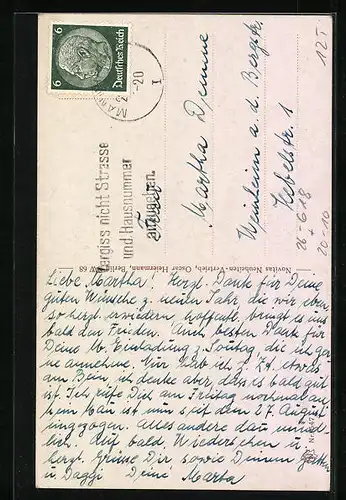 6
Deutsches Reich
6
-20
Vergiss nicht Strasse
und Hausnummer
anzugeben.
Martha
Weinheim a. d. Bergstr.
1
12T
26-618
20-10
Novitas Neuheiten-Vertrieb, Oscar Heiermann, Berlin W 68
Liebe Martha! Herzl. Dank für Deine
guten Wünsche z. neuen Jahr, die wir eben-
so herzl. erwidern, hoffentl. bringt es uns
bald den Frieden. Auch besten Dank für
Deine Einladung z. Sontag, die ich ger-
ne annehme. Nur hab ich z. Zt. etwas
am Bein, ich denke aber, dass es bald gut
ist. Ich rufe Dich am Freitag nochmal an.
Man ist uns seit dem 27. August
eingezogen. Alles andere dann münd-
lich. Auf bald Wiedersehen u.
herzl. Grüsse Dir sowie Deinem
u. Deine Marta